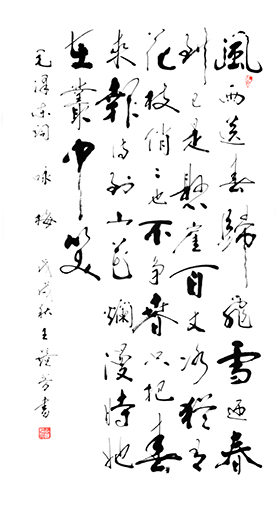 風雨送春歸飛雪迎春
到已是懸崖百丈冰猶有
花枝俏〻也不争春只把春
来報待到山花爛漫時她
在叢中笑
毛澤东词 咏梅 戊戌秋王書